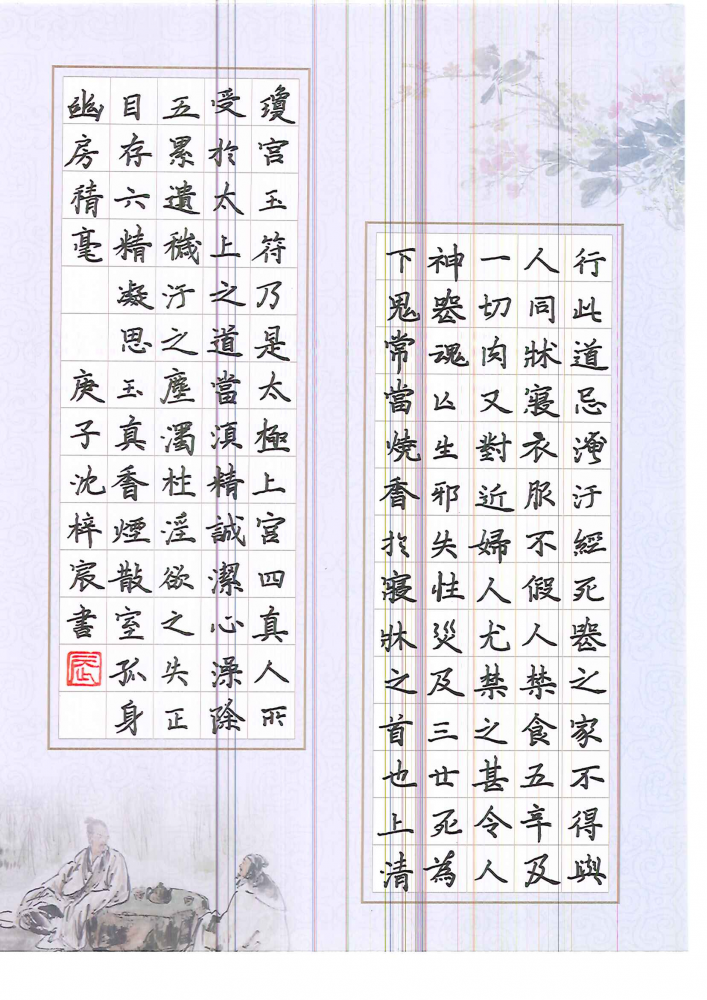 行此道忌淹汙經死喪之家不得與
人同牀寢衣服不假人禁食五辛及
一切肉又對近婦人尤禁之甚令人
神喪魂亡生邪失性災及三世死為
下鬼常當燒香於寢牀之首也上清
瓊宮玉符乃是太極上宮四真人所
受於太上之道當須精誠潔心澡除
五累遺穢汙之塵濁杜淫欲之失正
目存六精凝思玉真香煙散室孤身
幽房積毫
庚子沈梓宸書
辰